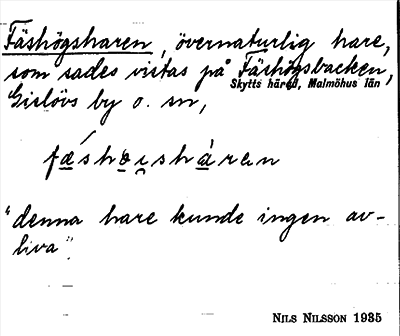 Fäshögsharen, övernaturlig hare,
som sades vistas på Fäshögsbacken,
Skytts härad, Malmöhus län
Gislövs by o. sn,
fǽshøi̯shàrɐn
"denna hare kunde ingen av-
liva".
NILS NILSSON 1935